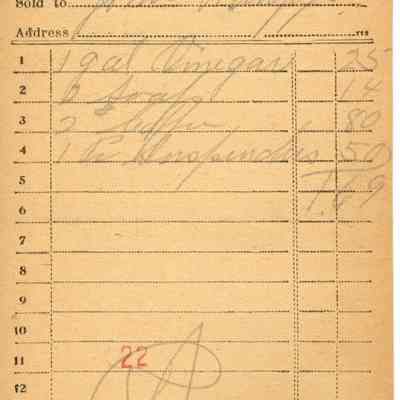 Sold to
Address
1 1 gal Vinegar 25
2 6 Soap 14
3 2 80
4 1 Pr Suspenders 50
5 1.69
6
7
8
9
10
11 22
12